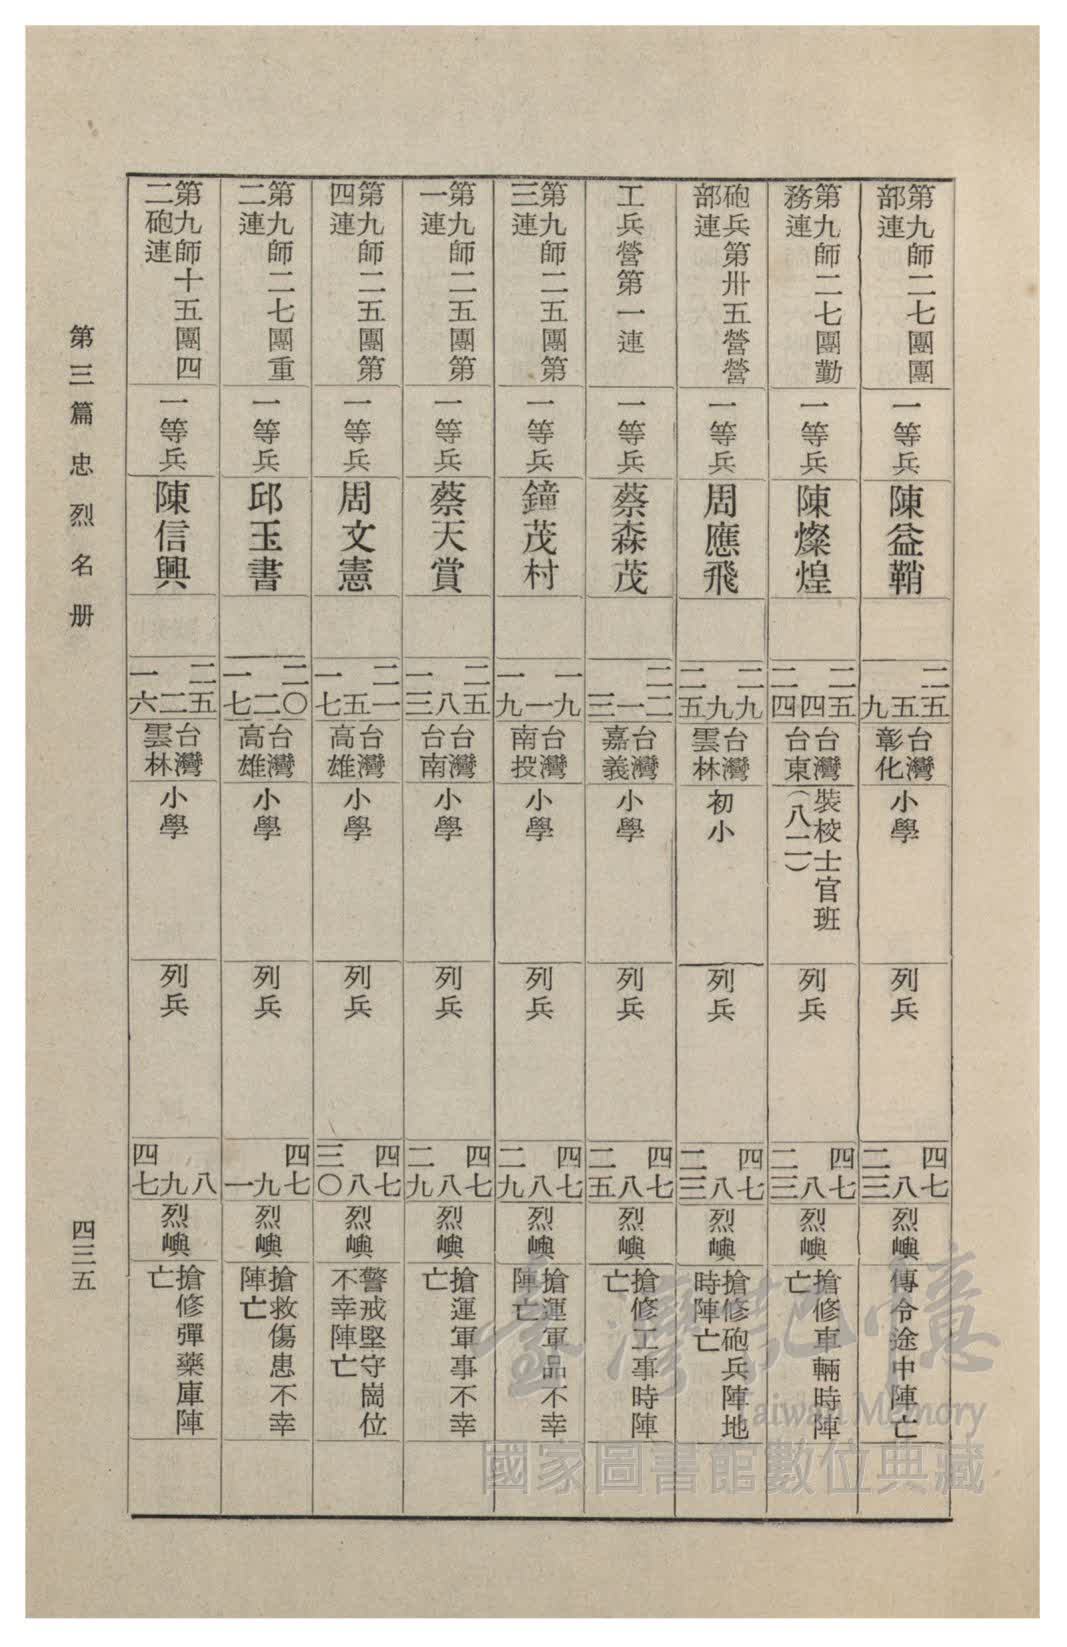 第九師二七團團
部連
一等兵
陳益鞘
二五
五
九
台灣
彰化
小學
列兵
四七
八
二三
烈嶼
傳令途中陣亡
第九師二七團勤
務連
一等兵
陳燦煌
二五
四
二四
台灣
台東
裝校士官班
（八二）
列兵
四七
八
二三
烈嶼
搶修車輛時陣
亡
砲兵第卅五營營
部連
一等兵
周應飛
二九
九
二五
台灣
雲林
初小
列兵
四七
八
二三
烈嶼
搶修砲兵陣地
時陣亡
工兵營第一連
一等兵
蔡森茂
二二
一
三
台灣
嘉義
小學
列兵
四七
八
二五
烈嶼
搶修工事時陣
亡
第九師二五團第
三連
一等兵
鐘茂村
一九
一
一九
台灣
南投
小學
列兵
四七
八
二九
烈嶼
搶運軍品不幸
陣亡
第九師二五團第
一連
一等兵
蔡天賞
二五
八
一三
台灣
台南
小學
列兵
四七
八
二九
烈嶼
搶運軍事不幸
亡
第九師二五團第
四連
一等兵
周文憲
二一
五
一七
台灣
高雄
小學
列兵
四七
八
三〇
烈嶼
警戒堅守崗位
不幸陣亡
第九師二七團重
二連
一等兵
邱玉書
二〇
二
一七
台灣
高雄
小學
列兵
四七
九
一
烈嶼
搶救傷患不幸
陣亡
第九師十五團四
二砲連
一等兵
陳信興
二五
二
一六
台灣
雲林
小學
列兵
八
九
四七
烈嶼
搶修彈藥庫陣
亡
第三篇 忠烈名册
四三五
臺灣記憶
Taiwan Memory
國家圖書館數位典藏